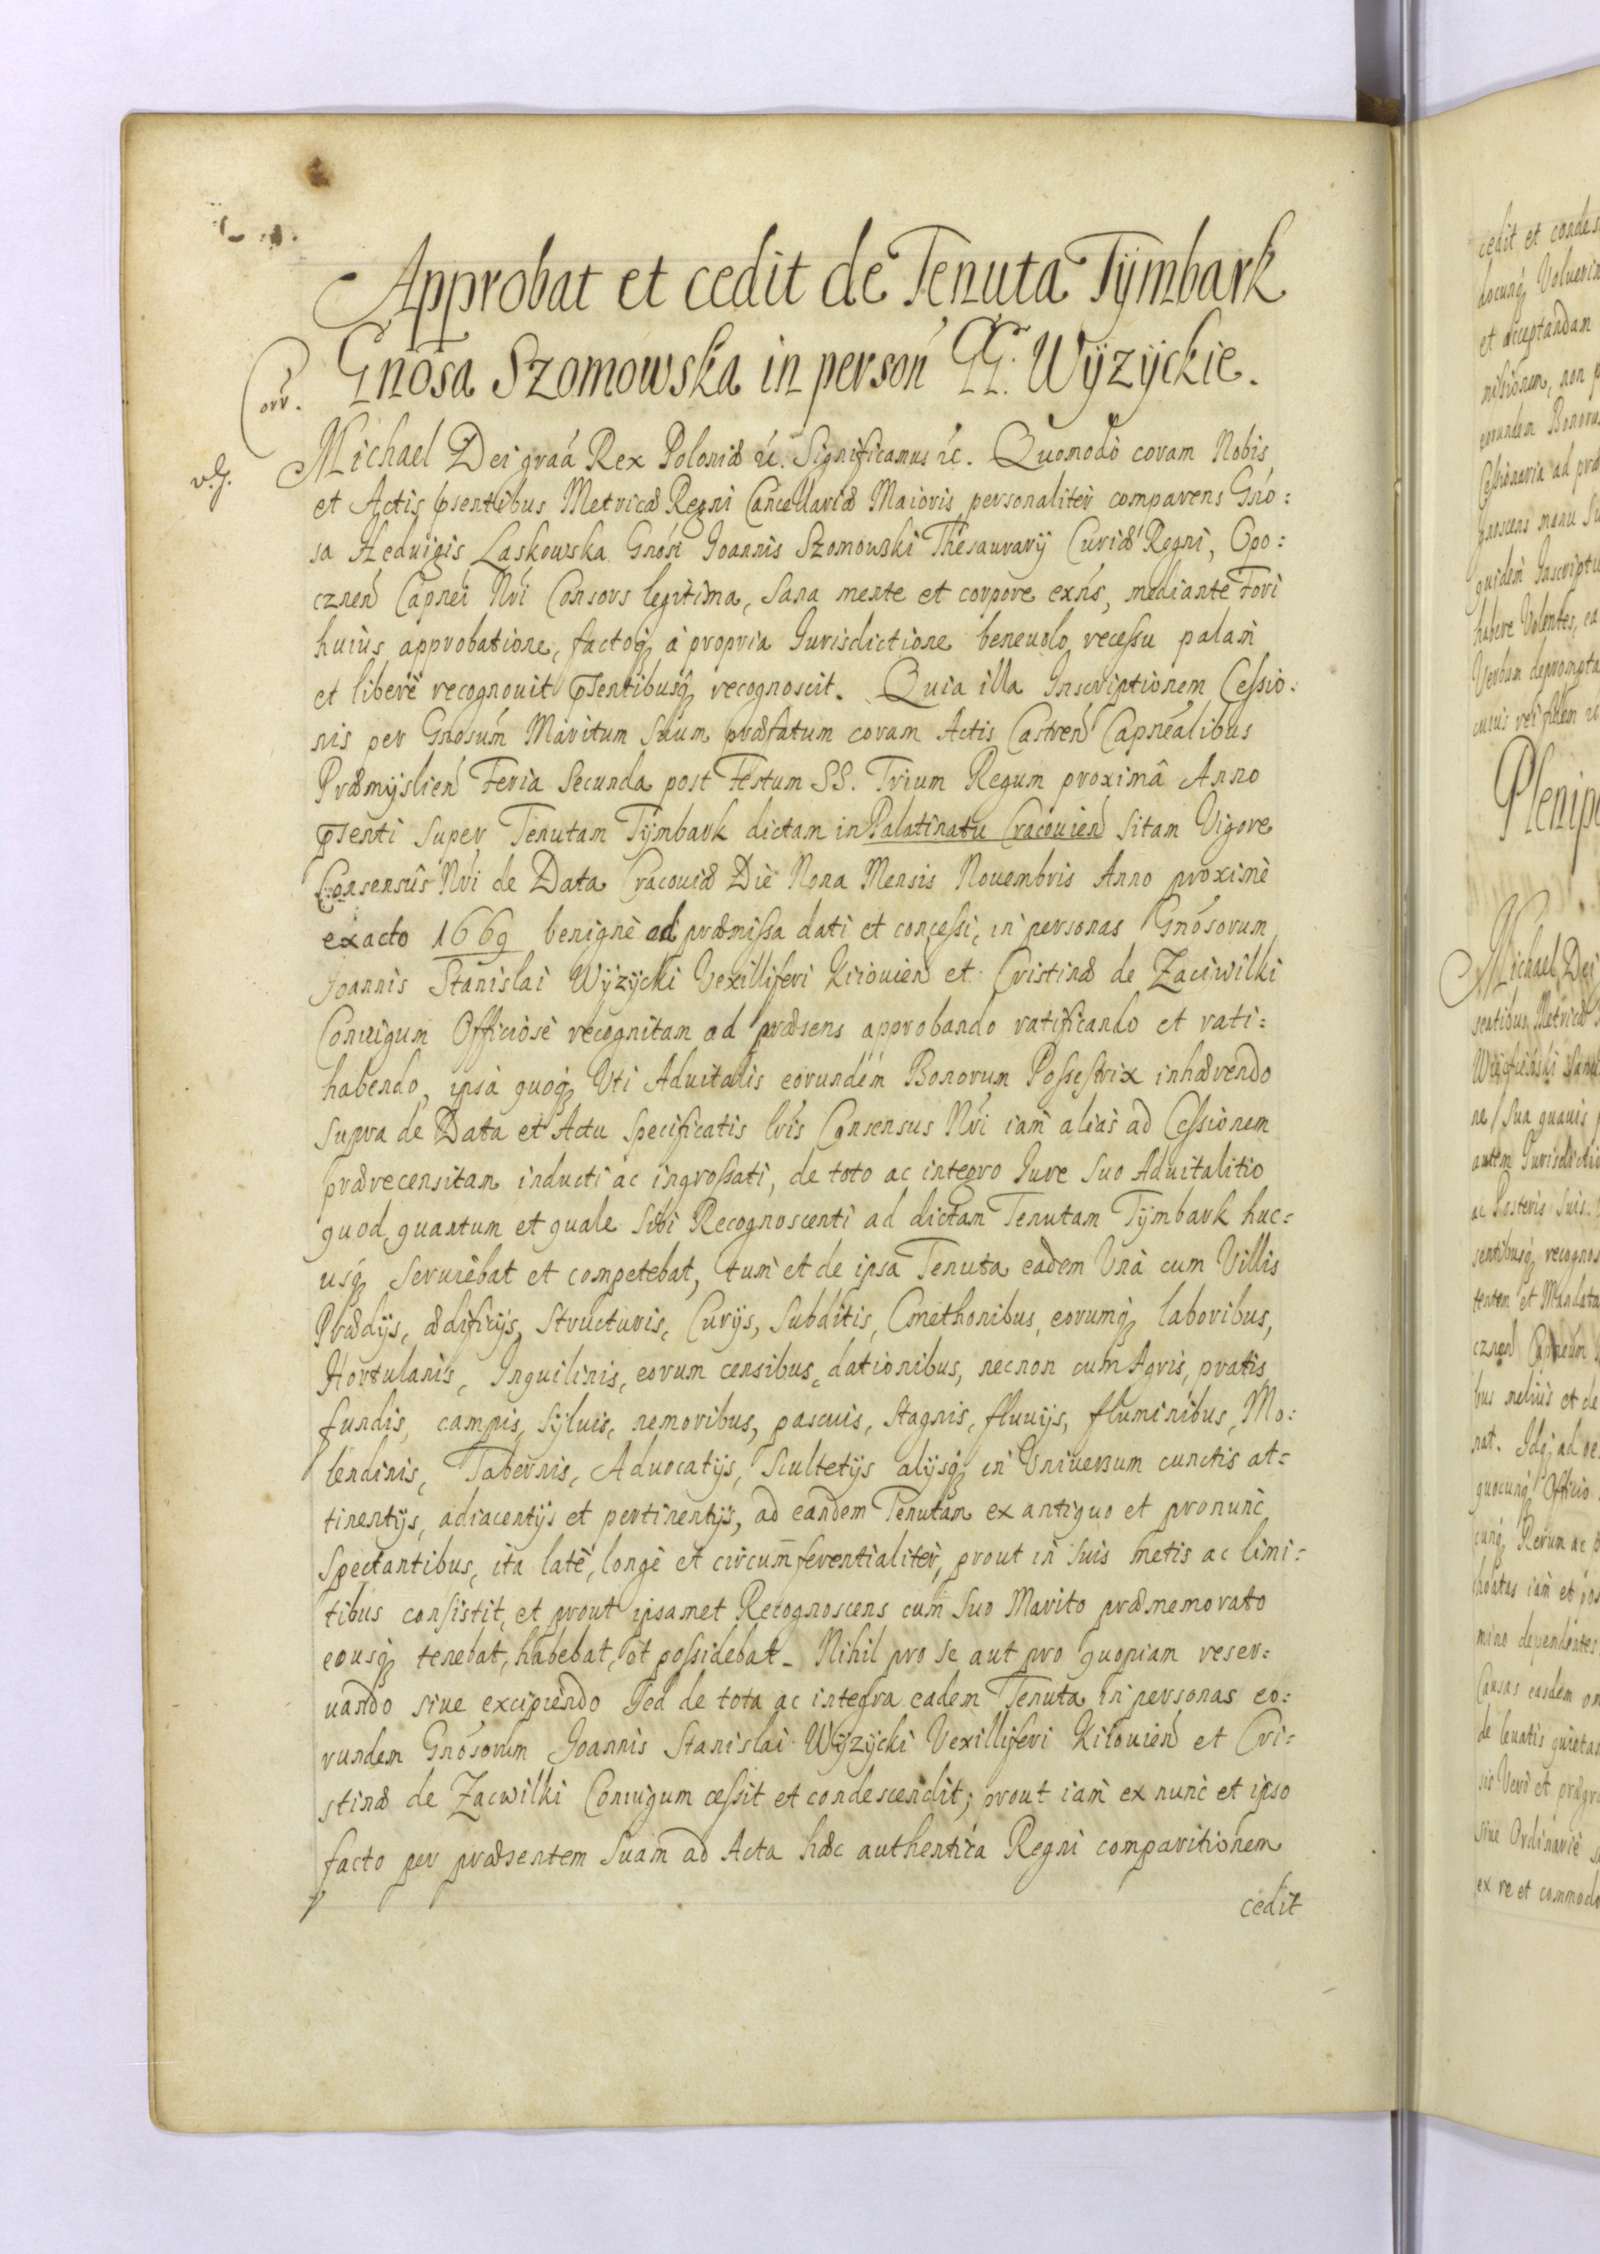 Approbat et cedit de Tenuta Tÿmbark
Gnõsa Szomowska in person̄ GG. Wÿzÿckie.
Corr.
Michael Dei graã Rex Poloniæ &c. Significamus &c. Quomodò coram Nobis
et Actis p̃sentibus Metricæ Regni Cancellariæ Maioris personalitèr comparens Gnõ:
sa Heduigis Laskowska Gnõsi Joannis Szomowski Thesaurarij Curiæ Regni, Opo:
cznen̄ Capnei Nr̃i Consors legitima, sana mente et corpore exñs, mediante Fori
huius approbatione, factoq́ à propria Jurisdictione beneuolo recessu palam
et liberè recognouit p̃sentibusq́ recognoscit. Quia illa Inscriptionem Cessio:
nis per Gnosum̃ Maritum suum præfatum coram Actis Castren̄ Capnealibus
Præmyslien̄ Feria Secunda post Festum SS. Trium Regum proximâ Anno
p̃senti super Tenutam Tÿmbark dictam in Palatinatu Cracouien̄ sitam Vigore
Consensûs Nr̃i de Data Cracouiæ Die Nona Mensis Nouembris Anno proximè
exacto 1669 benignè ad præmissa dati et concessi, in personas Gnõsorum
Joannis Stanislai Wÿzÿcki Vexilliferi Kiiouien̄ et Cristinæ de Zaciwilki
Coniugum Officiosè recognitam ad præsens approbando ratificando et rati:
habendo, ipsa quoq́ Uti Aduitalis eorundem Bonorum Possestrix inhærendo
supra de Data et Actu specificatis lr̃is Consensus Nr̃i iam aliàs ad Cessionem
prærecensitam inducti ac ingrossati, de toto ac integro Jure suo Aduitalitio
quod, quantum et quale sibi Recognoscenti ad dictam Tenutam Tÿmbark huc:
usq́ seruiebat et competebat, tum et de ipsa Tenuta eadem Unà cum Villis
Prædijs, ædificijs, structuris, Curijs, Subditis, Cmethonibus, eorumq́ laboribus,
Hortulanis, Inquilinis, eorum censibus, dationibus, necnon cum Agris, pratis,
fundis, campis, syluis, nemoribus, pascuis, stagnis, fluuijs, fluminibus, Mo:
lendinis, Tabernis, Aduocatijs, Scultetijs alijsq́ in Vniuersum cunctis at:
tinentijs, adiacentijs et pertinentijs, ad eandem Tenutam ex antiquo et pronunc
spectantibus, ita latè, longè et circumferentialitèr, prout in suis metis ac limi:
tibus consistit, et prout ipsamet Recognoscens cum suo Marito præmemorato
eousq́ tenebat, habebat, et possidebat. Nihil pro se aut pro quopiam reser:
uando siue excipiendo Sed de tota ac integra eadem Tenuta in personas eo:
rundem Gnõsorum Joannis Stanislai Wÿzÿcki Vexilliferi Kiiouien̄ et Cri:
stinæ de Zacwilki Coniugum cessit et condescendit; prout iam ex nunc et ipso
facto per præsentem suam ad Acta hæc authentica Regni comparitionem
cedit